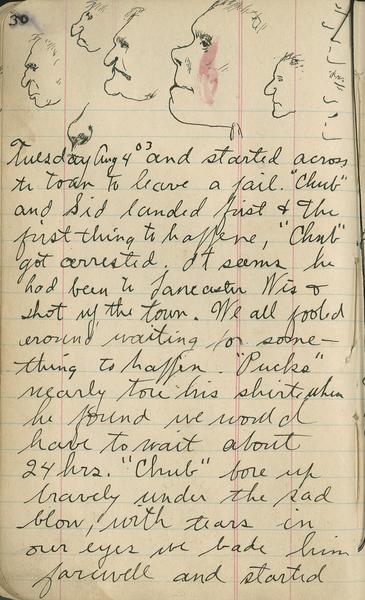 30
Tuesday Aug 4 03 and started across
to town to leave a pail. "Chub"
and Sid landed first & the
first thing to happene, "Chub"
got arrested, it seems he
had been to Lancaster Wis &
shot up the town. We all fooled
around waiting for some-
thing to happen. "Pucks"
nearly tore his shirt when
he found we would
have to wait about
24 hrs. "Chub" bore up
bravely under the sad
blow, with tears in
our eyes we bade him
farewell and started